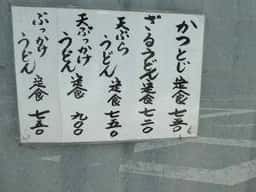 かつとじ定食 七五〇
ざるうどん定食 七二〇
天ぷらうどん定食 七五〇
天ぷっかけうどん定食 九〇〇
ぶっかけうどん定食 七五〇